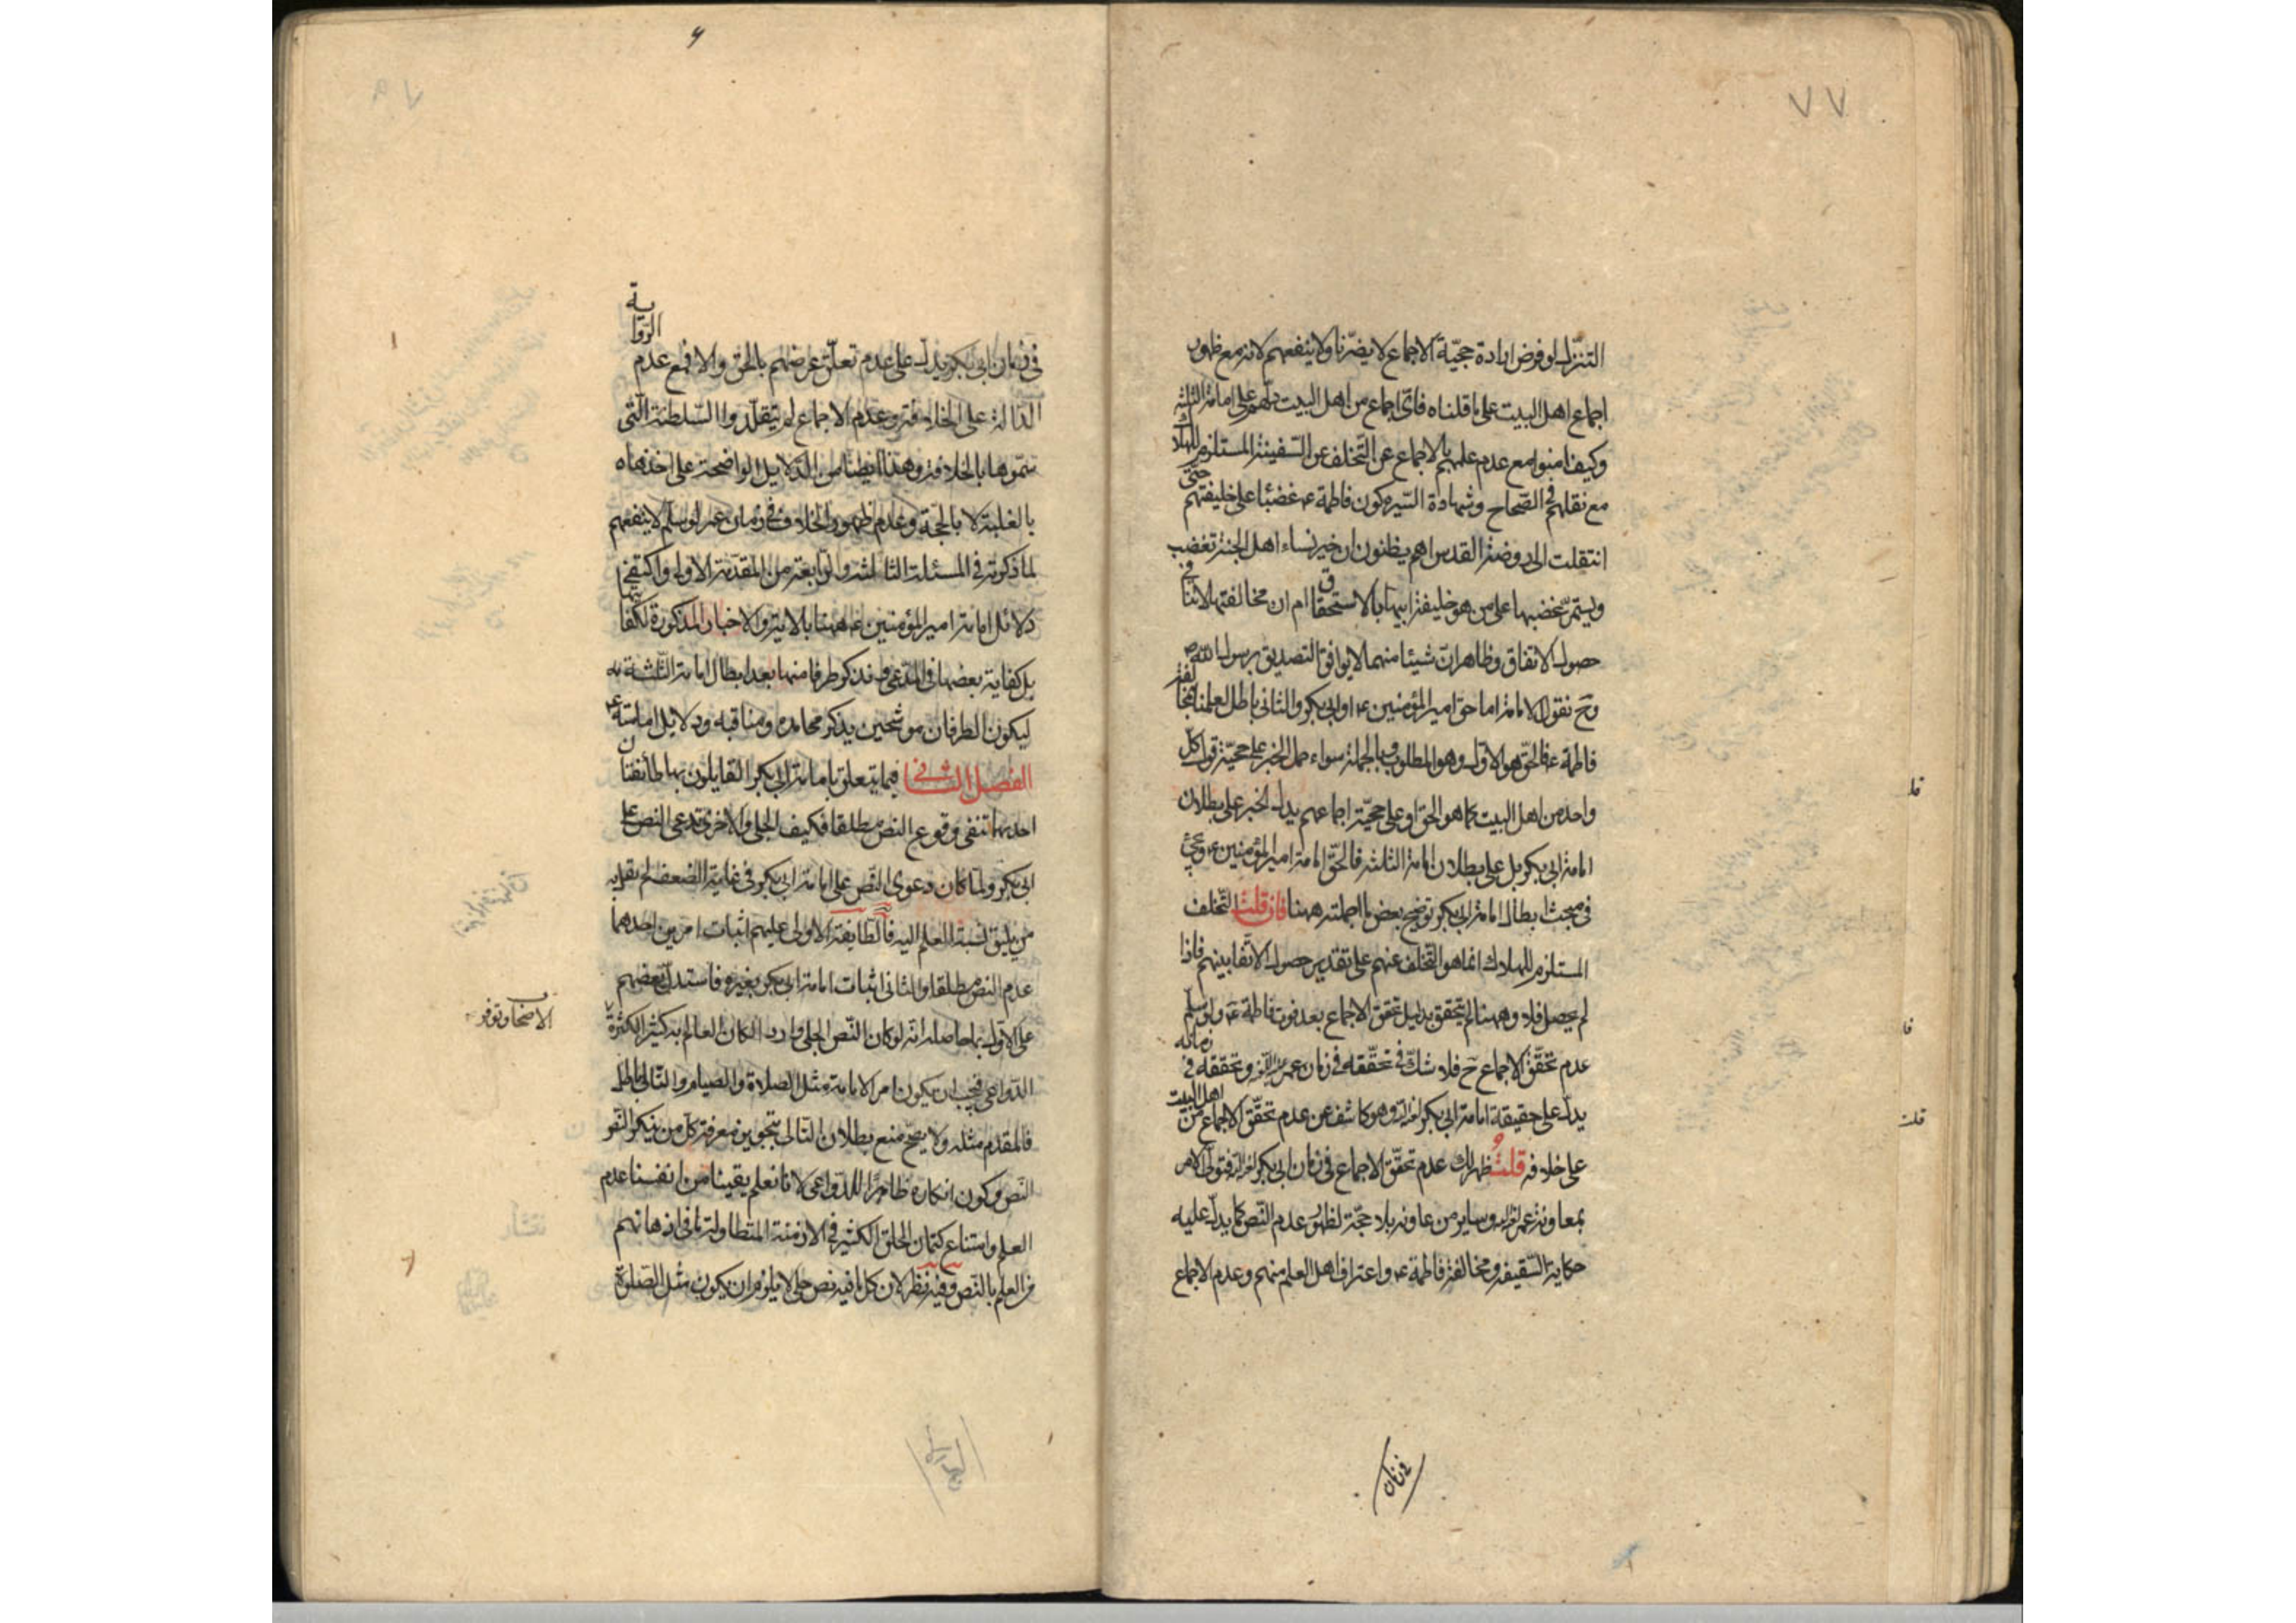 ٧٧
التنزل لو فرض ارادة حجيّة الاجماع لا يضرّنا ولا ينفعهم لانه مع ظهور
اجماع اهل البيت على ما قلناه فايّ اجماع من اهل البيت دلّهم على امامة الثلثة
وكيف امنوا مع عدم علمهم بالاجماع عن التخلف عن السّفينة المستلزم للهلاك
مع نقلهم في الصّحاح وشهادة السّير كون فاطمة ع غضبا على خليفتهم حتّى
انتقلت الى روضة القدس اهم يظنون ان خير نساء اهل الجنة تغضب
ويستمرّ غضبها على من هو خليفة ابيها بالاستحقاق ام ان مخالفتها لا تنافي
حصول الاتفاق وظاهر انّ شيئا منهما لا يوافق التصديق برسول الله ص
وح نقول الامامة اما حق امير المؤمنين ع او ابي بكر والثاني باطل لعلمنا بمخالفة
فاطمة ع فالحقّ هو الاول وهو المطلوب وبالجملة سواء حمل الخبر على حجيّة قول كلّ
واحد من اهل البيت كما هو الحق او على حجيّة اجماعهم يدل الخبر على بطلان
امامة ابي بكر بل على بطلان امامة الثلثة فالحقّ امامة امير المؤمنين ع ويجيء
في مبحث ابطال امامة ابي بكر توضيح بعض ما اجملته ههنا فان قلت التخلف
المستلزم للهلاك انما هو التخلف عنهم على تقدير حصول الاتفاق بينهم فاذا
لم يحصل فلا وههنا لم يتحقق بدليل تحقق الاجماع بعد فوت فاطمة ع ولو سلّم
عدم تحقّق الاجماع ح فلا شكّ في تحقّقه في زمان عمر وتحققه في زمانه
يدلّ على حقيقة امامة ابي بكر وهو كاشف عن عدم تحقّق الاجماع من اهل البيت
على خلافه قلتُ ظهر لك عدم تحقّق الاجماع في زمان ابي بكر فتولّى الامر
بمعاونة عمر وساير من عاونه بلا حجّة لظهور عدم النّص كما يدلّ عليه
حكاية السّقيفة ومخالفة فاطمة ع واعتراف اهل العلم منهم وعدم الاجماع
في زمان
في زمان ابي بكر يدل على عدم تعلّق غرضهم بالحق والا فمع عدم الرّواية
الدّالة على الخلافة وعدم الاجماع لم يتقلّدوا السّلطنة الّتي
سمّوها بالخلافة وهذا ايضا من الدّلايل الواضحة على اخذها
بالغلبة لا بالحجّة وعدم ظهور الخلاف في زمان عمر لو سلّم لا ينفعهم
لما ذكرته في المسئلة الثالثة والرّابعة من المقدّمة الاولى واكتفي في
دلائل امامة امير المؤمنين ع ههنا بالاية والاخبار المذكورة لكفايتها
بل كفاية بعضها في المدّعى وقد نذكر طرفا منها بعد ابطال امامة الثّلثة
ليكون الطرفان موشّحين بذكر محامده ومناقبه ودلايل امامته ع
الفصل الثاني فيما يتعلق بامامة ابي بكر القايلون بها طائفتان
احديهما تنفي وقوع النص مطلقا فكيف الجلي والاخرى تدعي النص على
ابي بكر ولمّا كان دعوى النّص على امامة ابي بكر في غاية الضعف لم يقل به
من يليق نسبة العلم اليه فالطّايفة الاولى عليهم اثبات امرين احدهما
عدم النص مطلقا والثاني اثبات امامة ابي بكر بغيره فاستدلّ بعضهم
على الاول بما حاصله انّه لو كان النّص الجلي واردا لكان العالم به كثيرا لكثرة
الاصحاب وتوفر
الدّواعي فيجب ان يكون امر الامامة مثل الصلاة والصيام والتّالي باطل
فالمقدم مثله ولا يصحّ منع بطلان التالي بتجويز معرفة كلّ من ينكر النّص
النّص وكون انكاره ظاهرًا للدّواعي لانا نعلم يقينا من انفسنا عدم
العلم وامتناع كتمان الخلق الكثير في الازمنة المتطاولة ما في اذهانهم
من العلم بالنّص وفيه نظر لان كل ما فيه نص جلي لا يلزم ان يكون مثل الصّلوة